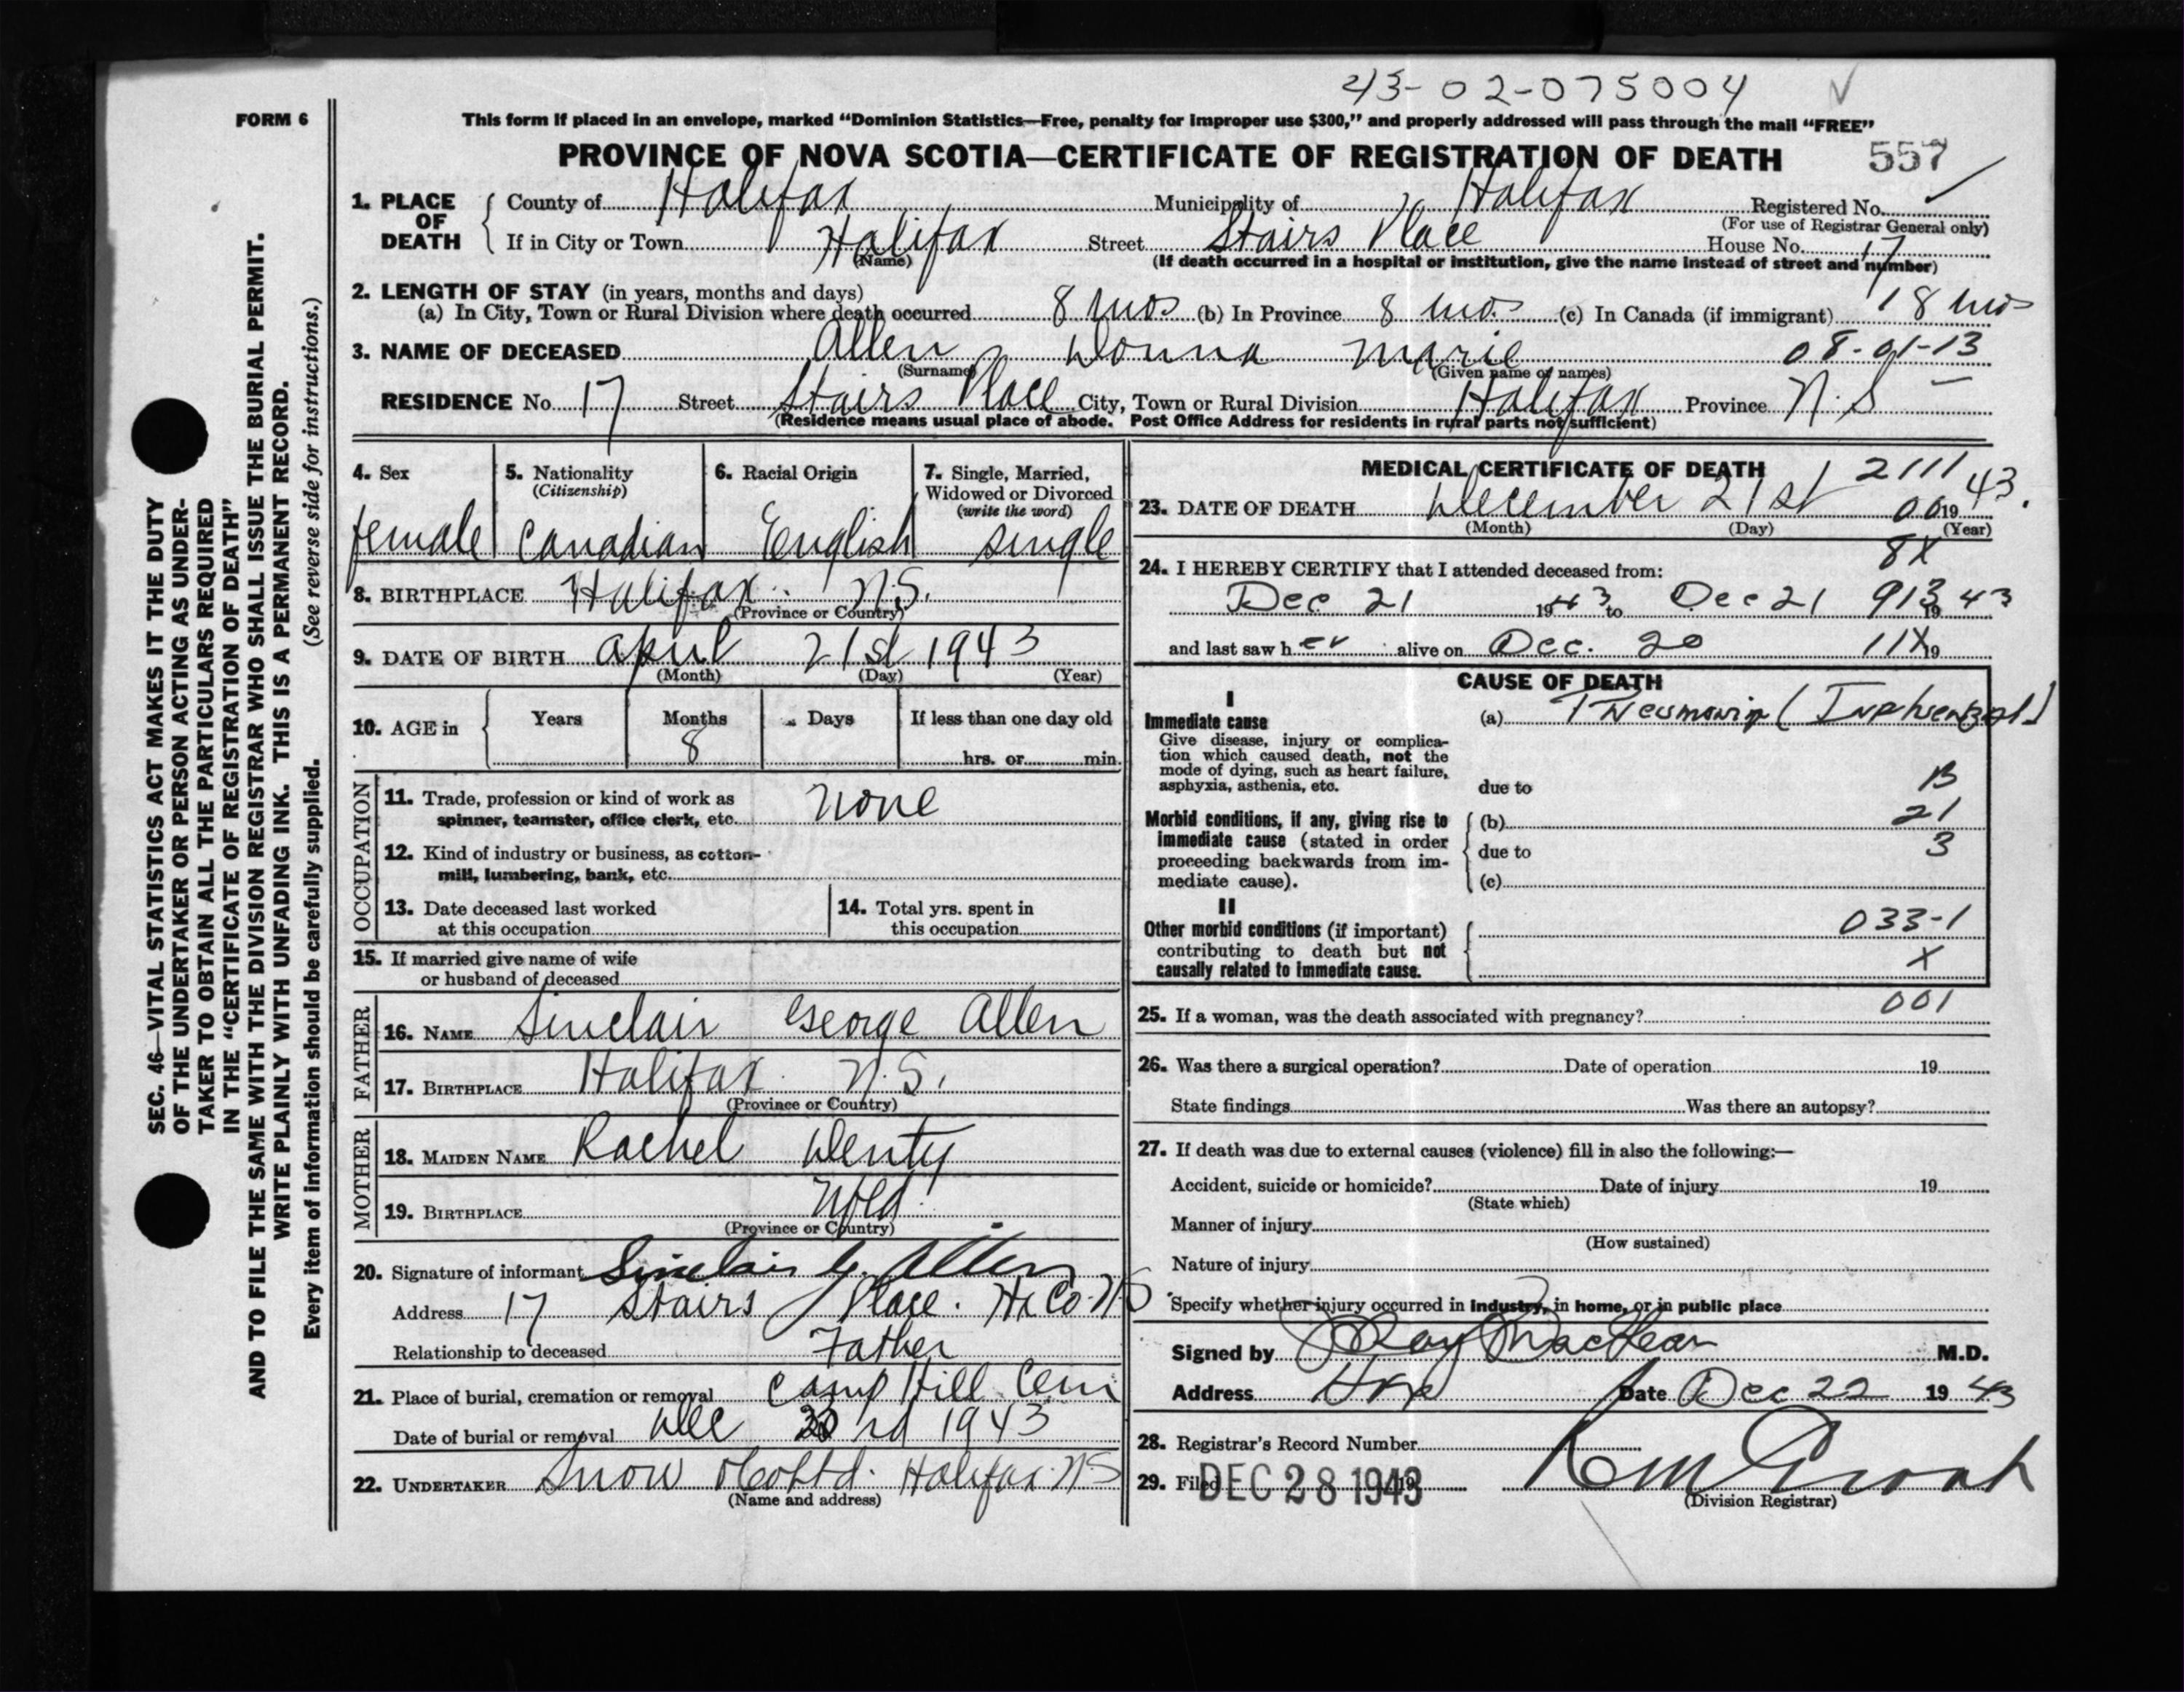 43-02-075004
FORM 6
This form if placed in an envelope, marked “Dominion Statistics—Free, penalty for improper use $300,” and properly addressed will pass through the mail “FREE”
PROVINCE OF NOVA SCOTIA—CERTIFICATE OF REGISTRATION OF DEATH 557
1. PLACE OF DEATH County of Halifax Municipality of Halifax Registered No.
(For use of Registrar General only)
If in City or Town Halifax Street Stairs Place House No. 17
(Name) (If death occurred in a hospital or institution, give the name instead of street and number)
2. LENGTH OF STAY (in years, months and days)
(a) In City, Town or Rural Division where death occurred 8 mos (b) In Province 8 mos. (c) In Canada (if immigrant) 18 mos
3. NAME OF DECEASED Allen Donna Marie 08-01-13
(Surname) (Given name or names)
RESIDENCE No. 17 Street Stairs Place City, Town or Rural Division Halifax Province N.S
(Residence means usual place of abode. Post Office Address for residents in rural parts not sufficient)
4. Sex 5. Nationality (Citizenship) 6. Racial Origin 7. Single, Married, Widowed or Divorced (write the word)
female Canadian English single
8. BIRTHPLACE Halifax N.S.
(Province or Country)
9. DATE OF BIRTH April 21st 1943
(Month) (Day) (Year)
10. AGE in Years Months Days If less than one day old
8 hrs. or min.
OCCUPATION
11. Trade, profession or kind of work as
spinner, teamster, office clerk, etc. None
12. Kind of industry or business, as cotton-
mill, lumbering, bank, etc.
13. Date deceased last worked
at this occupation
14. Total yrs. spent in
this occupation
15. If married give name of wife
or husband of deceased
FATHER
16. NAME Sinclair George Allen
17. BIRTHPLACE Halifax N.S.
(Province or Country)
MOTHER
18. MAIDEN NAME Rachel Denty
19. BIRTHPLACE Nfld
(Province or Country)
20. Signature of informant Sinclair G. Allen
Address 17 Stairs Place. Hx Co. N.S
Relationship to deceased Father
21. Place of burial, cremation or removal Camp Hill Cem
Date of burial or removal Dec rd 1943
22. UNDERTAKER Snow & Co Ltd. Halifax. N.S
(Name and address)
MEDICAL CERTIFICATE OF DEATH 2111
23. DATE OF DEATH December 21st 00 1943.
(Month) (Day) (Year)
8X
24. I HEREBY CERTIFY that I attended deceased from:
Dec 21 1943 to Dec 21 913 1943
and last saw her alive on Dec. 20 11X 19
CAUSE OF DEATH
I
Immediate cause (a) Pneumonia (Influenzal)
Give disease, injury or complica-
tion which caused death, not the
mode of dying, such as heart failure,
asphyxia, asthenia, etc. due to B
Morbid conditions, if any, giving rise to (b) 21
immediate cause (stated in order due to 3
proceeding backwards from im-
mediate cause). (c)
II
Other morbid conditions (if important) 033-1
contributing to death but not
causally related to immediate cause. X
001
25. If a woman, was the death associated with pregnancy?
26. Was there a surgical operation? Date of operation 19
State findings Was there an autopsy?
27. If death was due to external causes (violence) fill in also the following:—
Accident, suicide or homicide? Date of injury 19
(State which)
Manner of injury
(How sustained)
Nature of injury
Specify whether injury occurred in industry, in home, or in public place
Signed by M.D.
Address Hfx Date Dec 22 1943
28. Registrar's Record Number
29. Filed DEC 28 1943 19
(Division Registrar)
SEC. 46—VITAL STATISTICS ACT MAKES IT THE DUTY
OF THE UNDERTAKER OR PERSON ACTING AS UNDER-
TAKER TO OBTAIN ALL THE PARTICULARS REQUIRED
IN THE “CERTIFICATE OF REGISTRATION OF DEATH”
AND TO FILE THE SAME WITH THE DIVISION REGISTRAR WHO SHALL ISSUE THE BURIAL PERMIT.
WRITE PLAINLY WITH UNFADING INK. THIS IS A PERMANENT RECORD.
Every item of information should be carefully supplied. (See reverse side for instructions.)